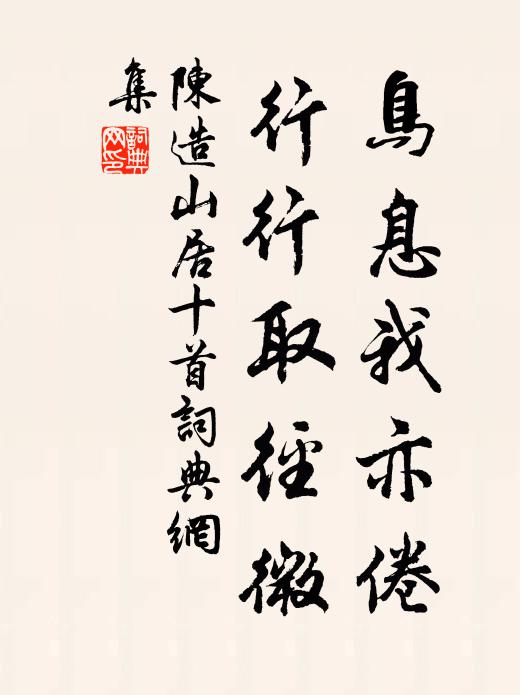 鳥息我亦倦
行行取徑微
陳造山居十首詞典網
集
詞典網印